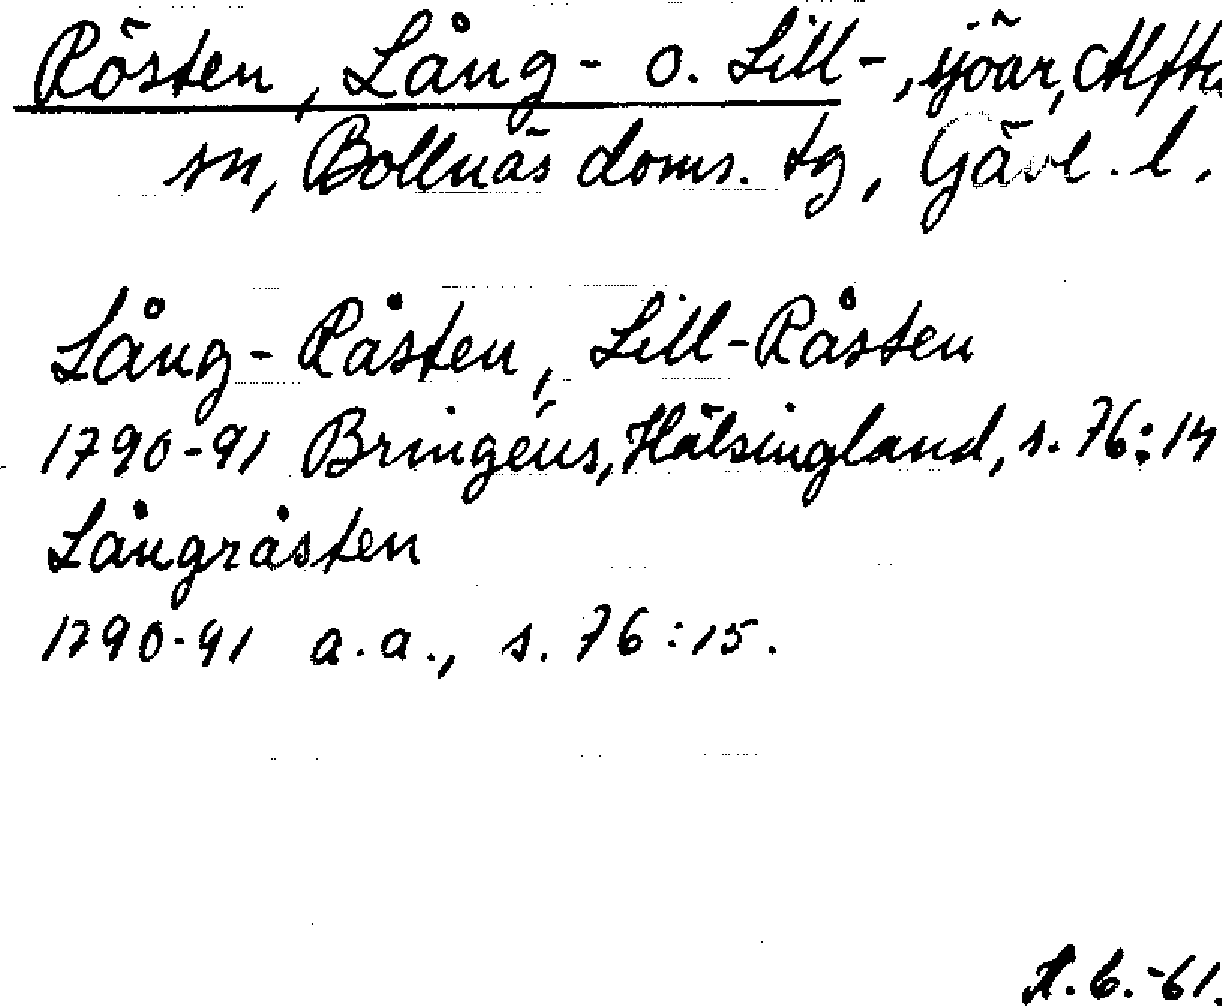 Rösten, Lång- o. Lill-, sjöar, Alfta
sn, Bollnäs doms. tg, Gävl. l.
Lång-Råsten, Lill-Råsten
1790-91 Bringéus, Hälsingland, s. 76:14
Långråsten
1790-91 a.a., s. 76:15.